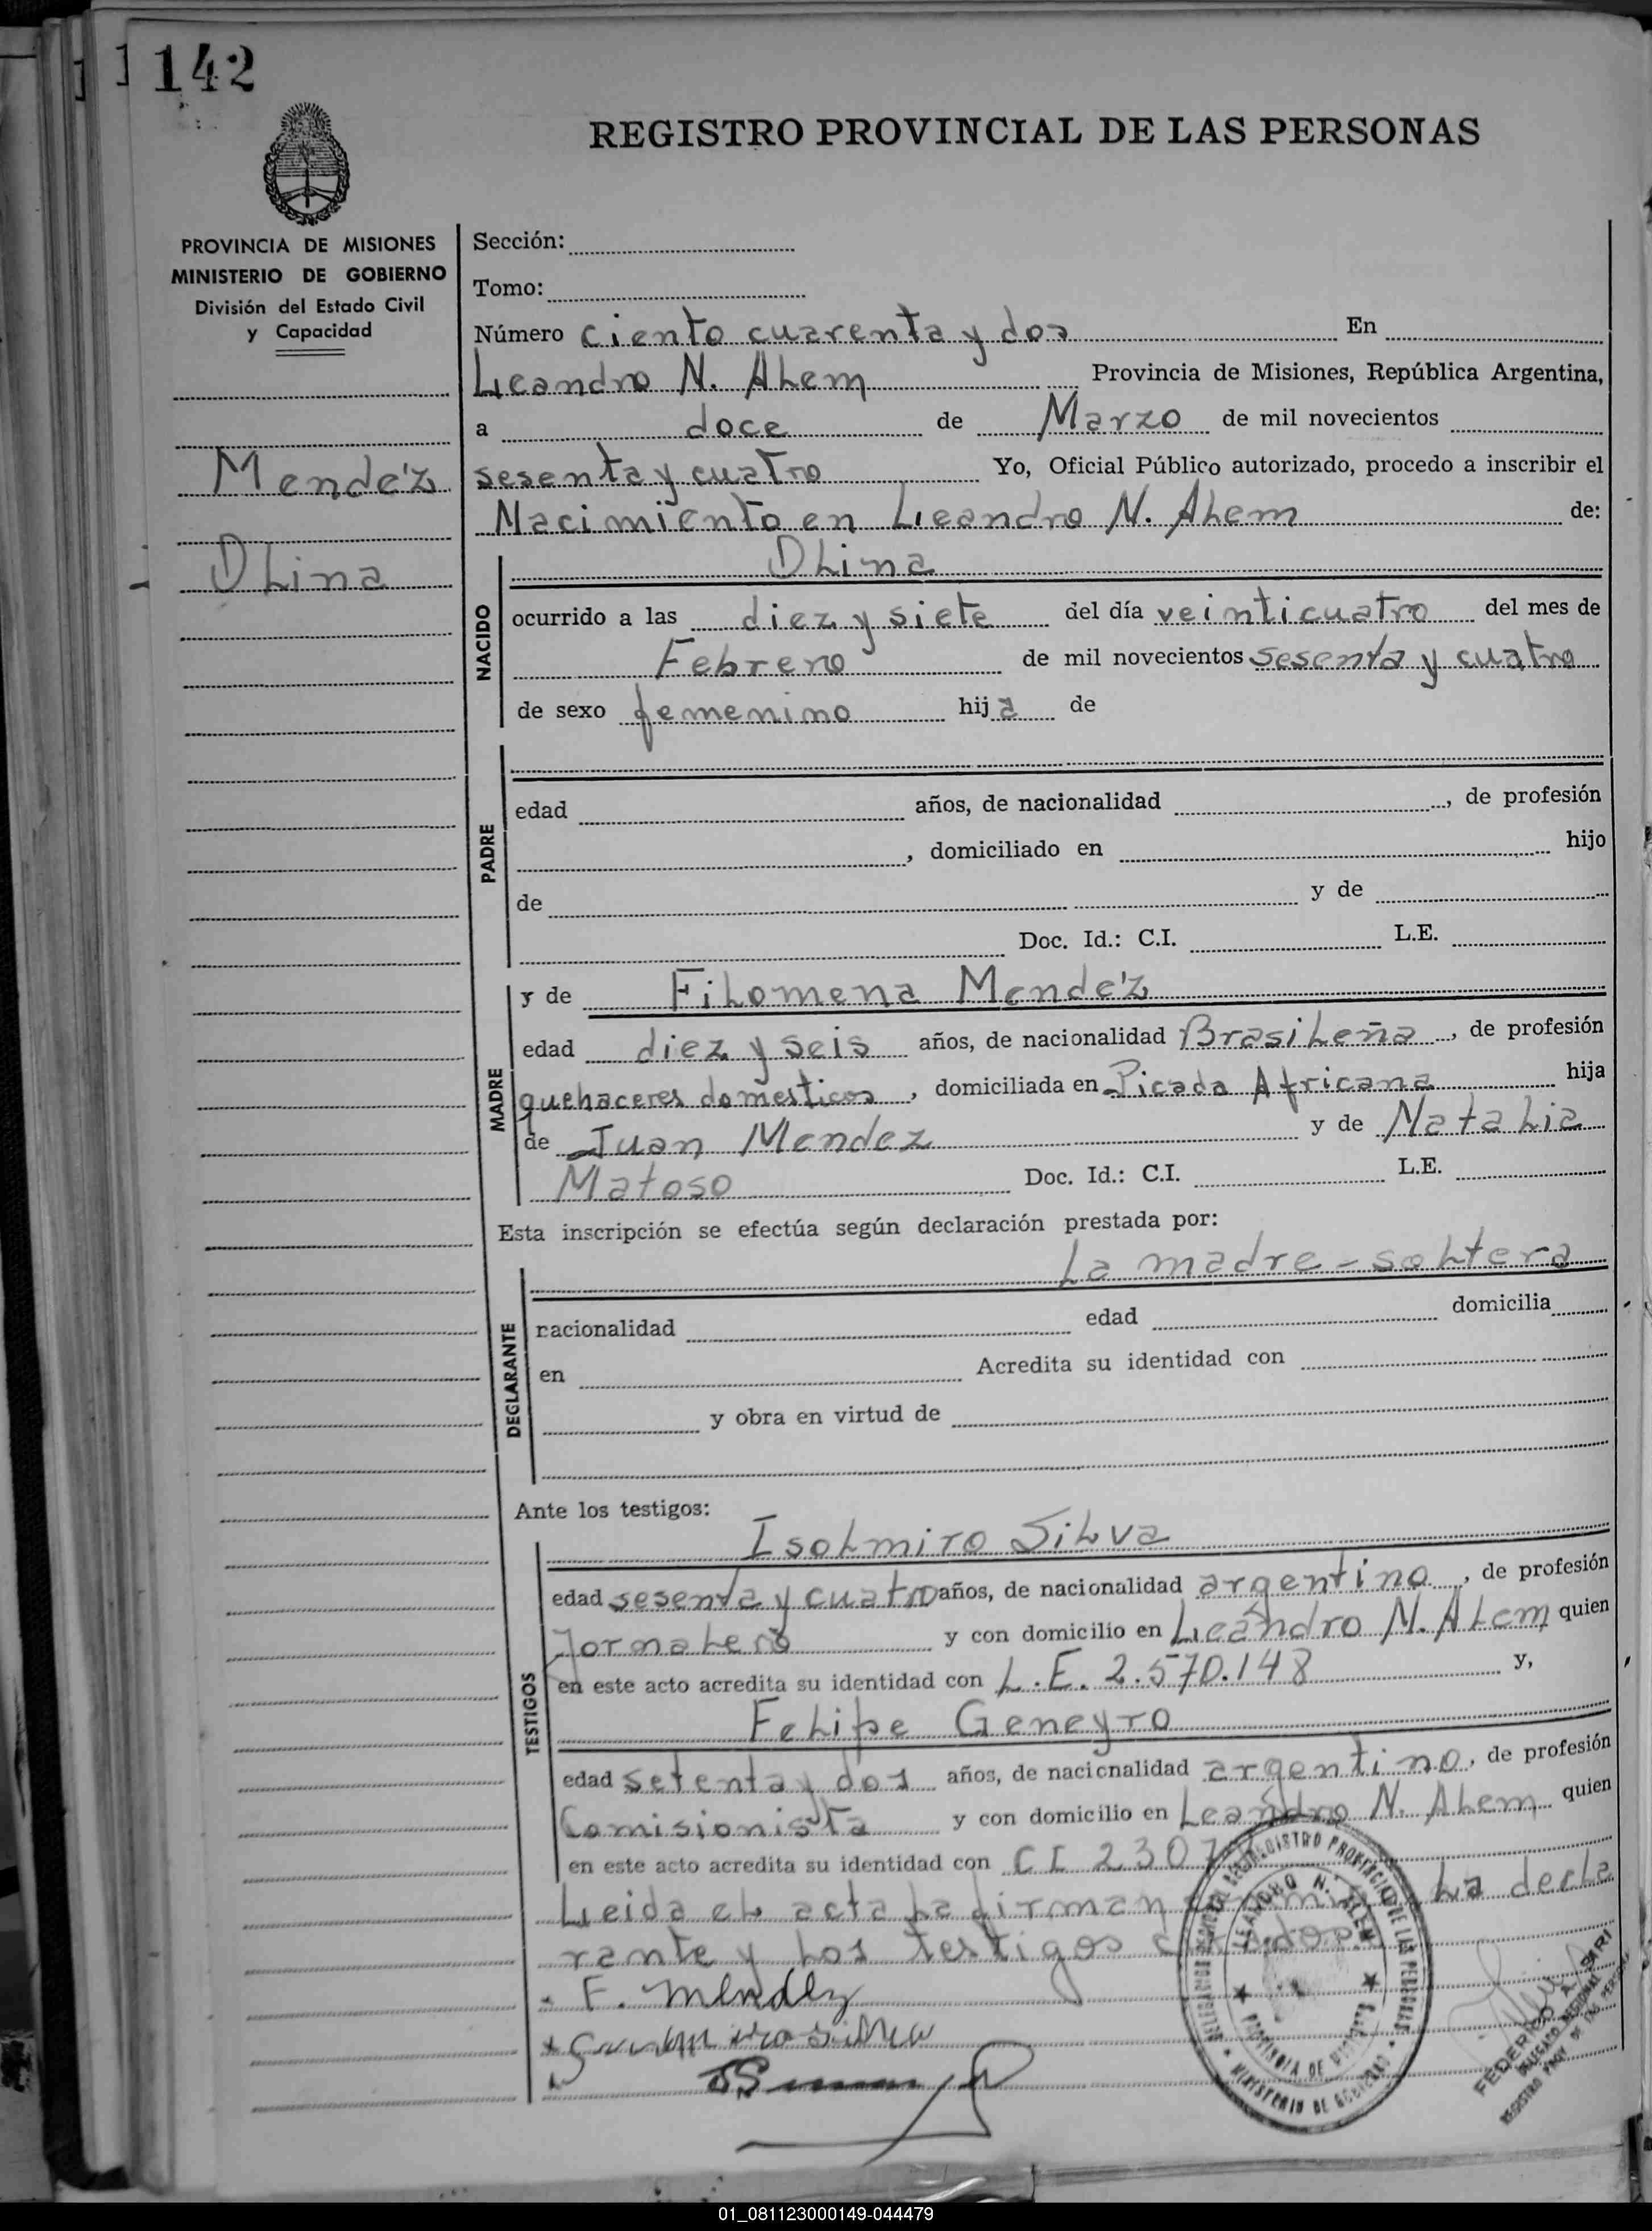 142
REGISTRO PROVINCIAL DE LAS PERSONAS
PROVINCIA DE MISIONES
MINISTERIO DE GOBIERNO
División del Estado Civil
y Capacidad
Mendéz
Dlina
Sección:
Tomo:
Número ciento cuarenta y dos En
Leandro N. Alem Provincia de Misiones, República Argentina,
a doce de Marzo de mil novecientos
sesenta y cuatro Yo, Oficial Público autorizado, procedo a inscribir el
Nacimiento en Leandro N. Alem de:
NACIDO
Dlina
ocurrido a las diez y siete del día veinticuatro del mes de
Febrero de mil novecientos sesenta y cuatro
de sexo femenino hija de
PADRE
edad años, de nacionalidad , de profesión
, domiciliado en hijo
de y de
Doc. Id.: C.I. L.E.
MADRE
y de Filomena Mendéz
edad diez y seis años, de nacionalidad Brasileña , de profesión
quehaceres domesticos , domiciliada en Picada Africana hija
de Juan Mendez y de Natalia
Matoso Doc. Id.: C.I. L.E.
Esta inscripción se efectúa según declaración prestada por:
La madre - soltera
DECLARANTE
nacionalidad edad domicilia
en Acredita su identidad con
y obra en virtud de
Ante los testigos:
TESTIGOS
Isolmiro Silva
edad sesenta y cuatro años, de nacionalidad argentino , de profesión
Jornalero y con domicilio en Leandro N. Alem quien
en este acto acredita su identidad con L.E. 2.570.148 y,
Felipe Geneyro
edad setenta y dos años, de nacionalidad argentino, de profesión
Comisionista y con domicilio en Leandro N. Alem quien
en este acto acredita su identidad con CI 2307
Leida el acta la firman la decla
rante y los testigos
F. Mendez
LEANDRO N. ALEM
PROVINCIA DE MISIONES
MINISTERIO DE GOBIERNO
REGISTRO PROVINCIAL DE LAS PERSONAS
FEDERICO A. SARI
DELEGADO REGIONAL
REGISTRO PROV. DE LAS PERSONAS
01_081123000149-044479